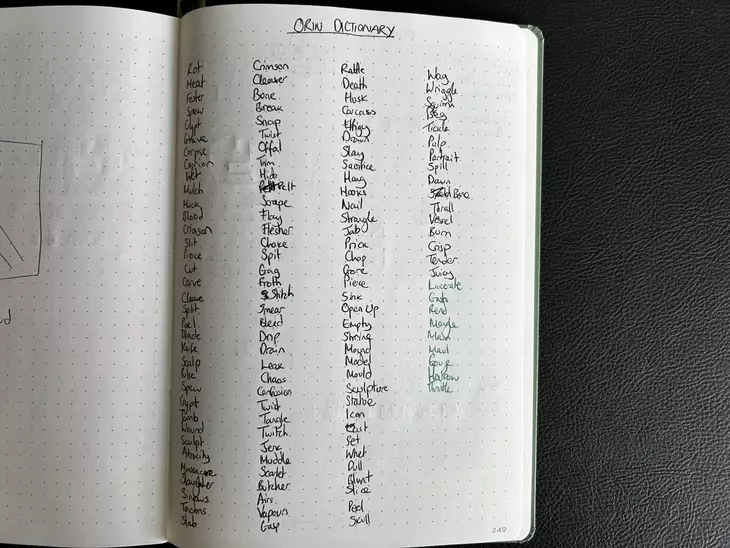 ORIN DICTIONARY
Rot
Meat
Fester
Spew
Crypt
Grave
Corpse
Carrion
Wet
Mulch
Muck
Blood
Crimson
Slit
Pierce
Cut
Carve
Cleave
Split
Peel
Blade
Knife
Scalp
Spew
Crypt
Tomb
Wound
Sculpt
Atrocity
Massacre
Slaughter
Sinews
Tendons
Slab
Crimson
Cleaver
Bone
Break
Snap
Twist
Offal
Trim
Hide
Pelt
Scrape
Flay
Flesher
Choke
Spit
Gag
Froth
Stitch
Smear
Bleed
Drip
Drain
Leak
Chaos
Confusion
Twist
Tangle
Twitch
Jerk
Muddle
Scarlet
Butcher
Airs
Vapours
Gasp
Rattle
Death
Husk
Carcass
Effigy
Drawn
Slay
Sacrifice
Hang
Hooks
Nail
Strangle
Jab
Price
Chop
Gore
Pierce
Sink
Open Up
Empty
Shrine
Mound
Model
Mould
Sculpture
Statue
Icon
Cast
Set
Whet
Dull
Blunt
Slice
Pool
Skull
Wag
Wriggle
Squirm
Beg
Tickle
Pulp
Portrait
Spill
Dawn
Bone
Thrall
Vessel
Burn
Crisp
Tender
Juicy
Lacerate
Gash
Rend
Mangle
Maim
Maul
Gouge
Hollow
Throttle
249